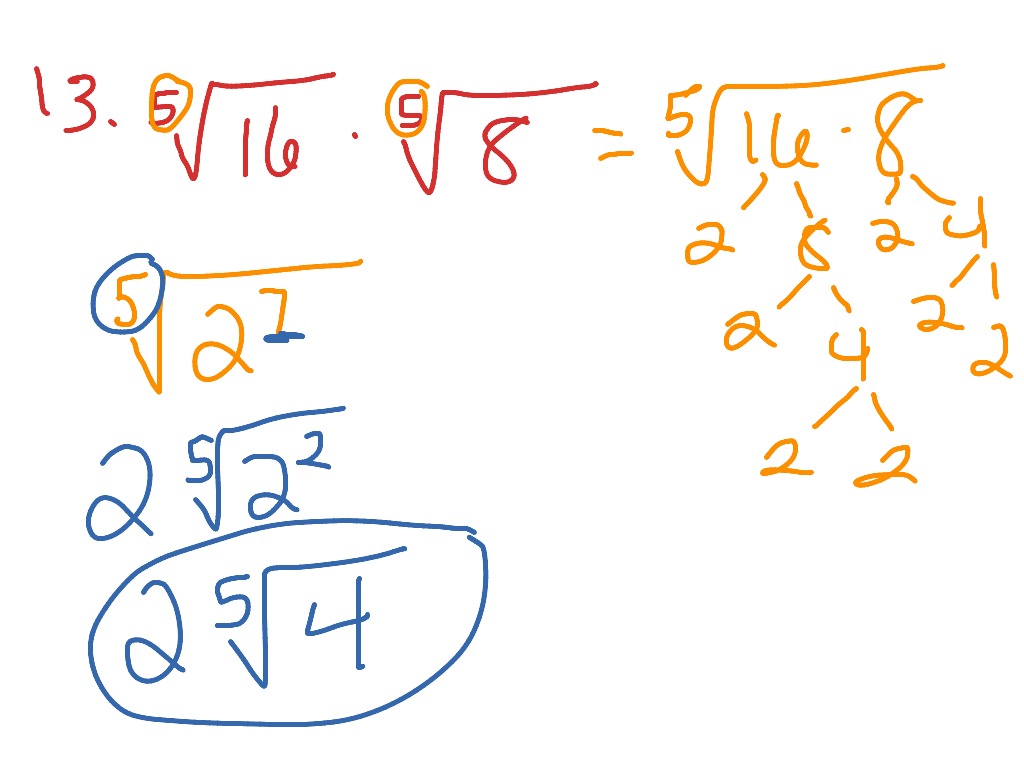 13. ⁵√16 · ⁵√8 = ⁵√16 · 8
2 8 2 4
2 4 2 2
2 2
⁵√2⁷
2 ⁵√2²
2 ⁵√4